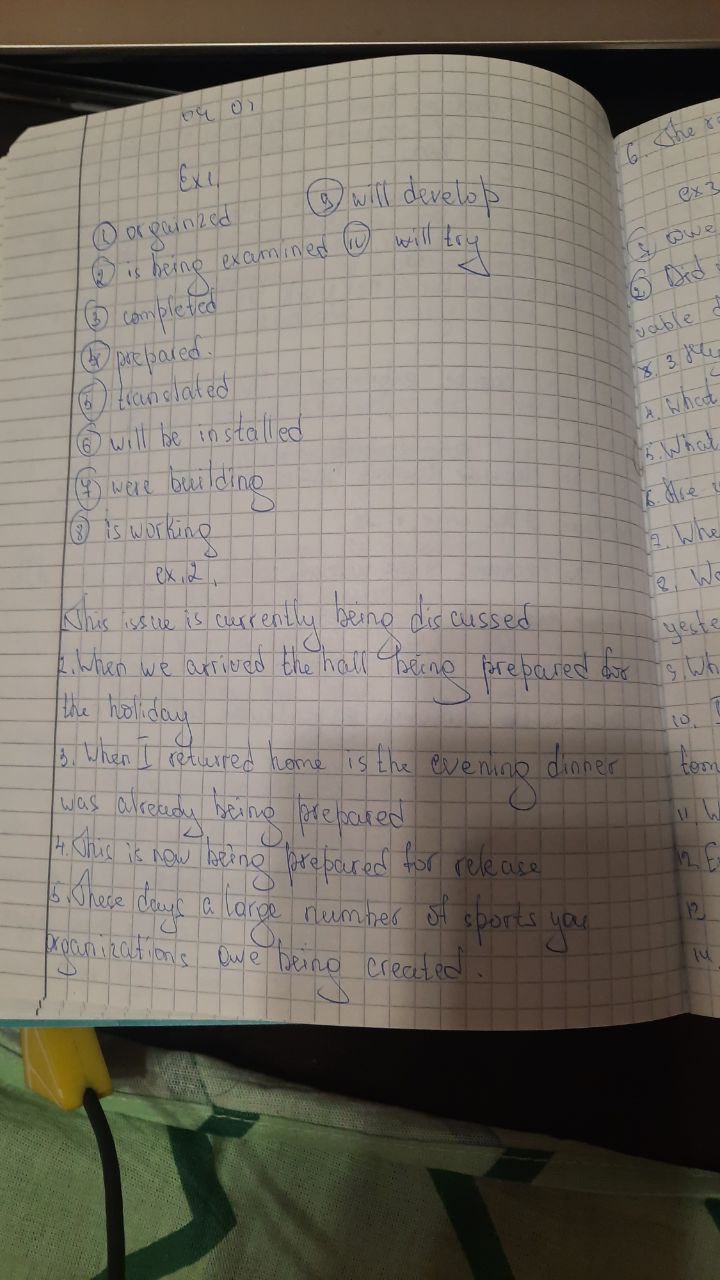 04 01
Ex1.
① orgainzed
② is being examined
③ completed
④ prepared.
⑤ translated
⑥ will be installed
⑦ were building
⑧ is working
⑨ will develop
⑩ will try
ex.2.
This issue is currently being discussed
2. When we arrived the hall being prepared for
the holiday
3. When I returred home is the evening dinner
was already being prepared
4. This is now being prepared for release
5. These days a large number of sports
organizations owe being created.
6. The
ex3
② Did
4. What
5. What
7. Whe
8. Wo
yeste
9. Wh
10.
11. W
12 E
13
14.